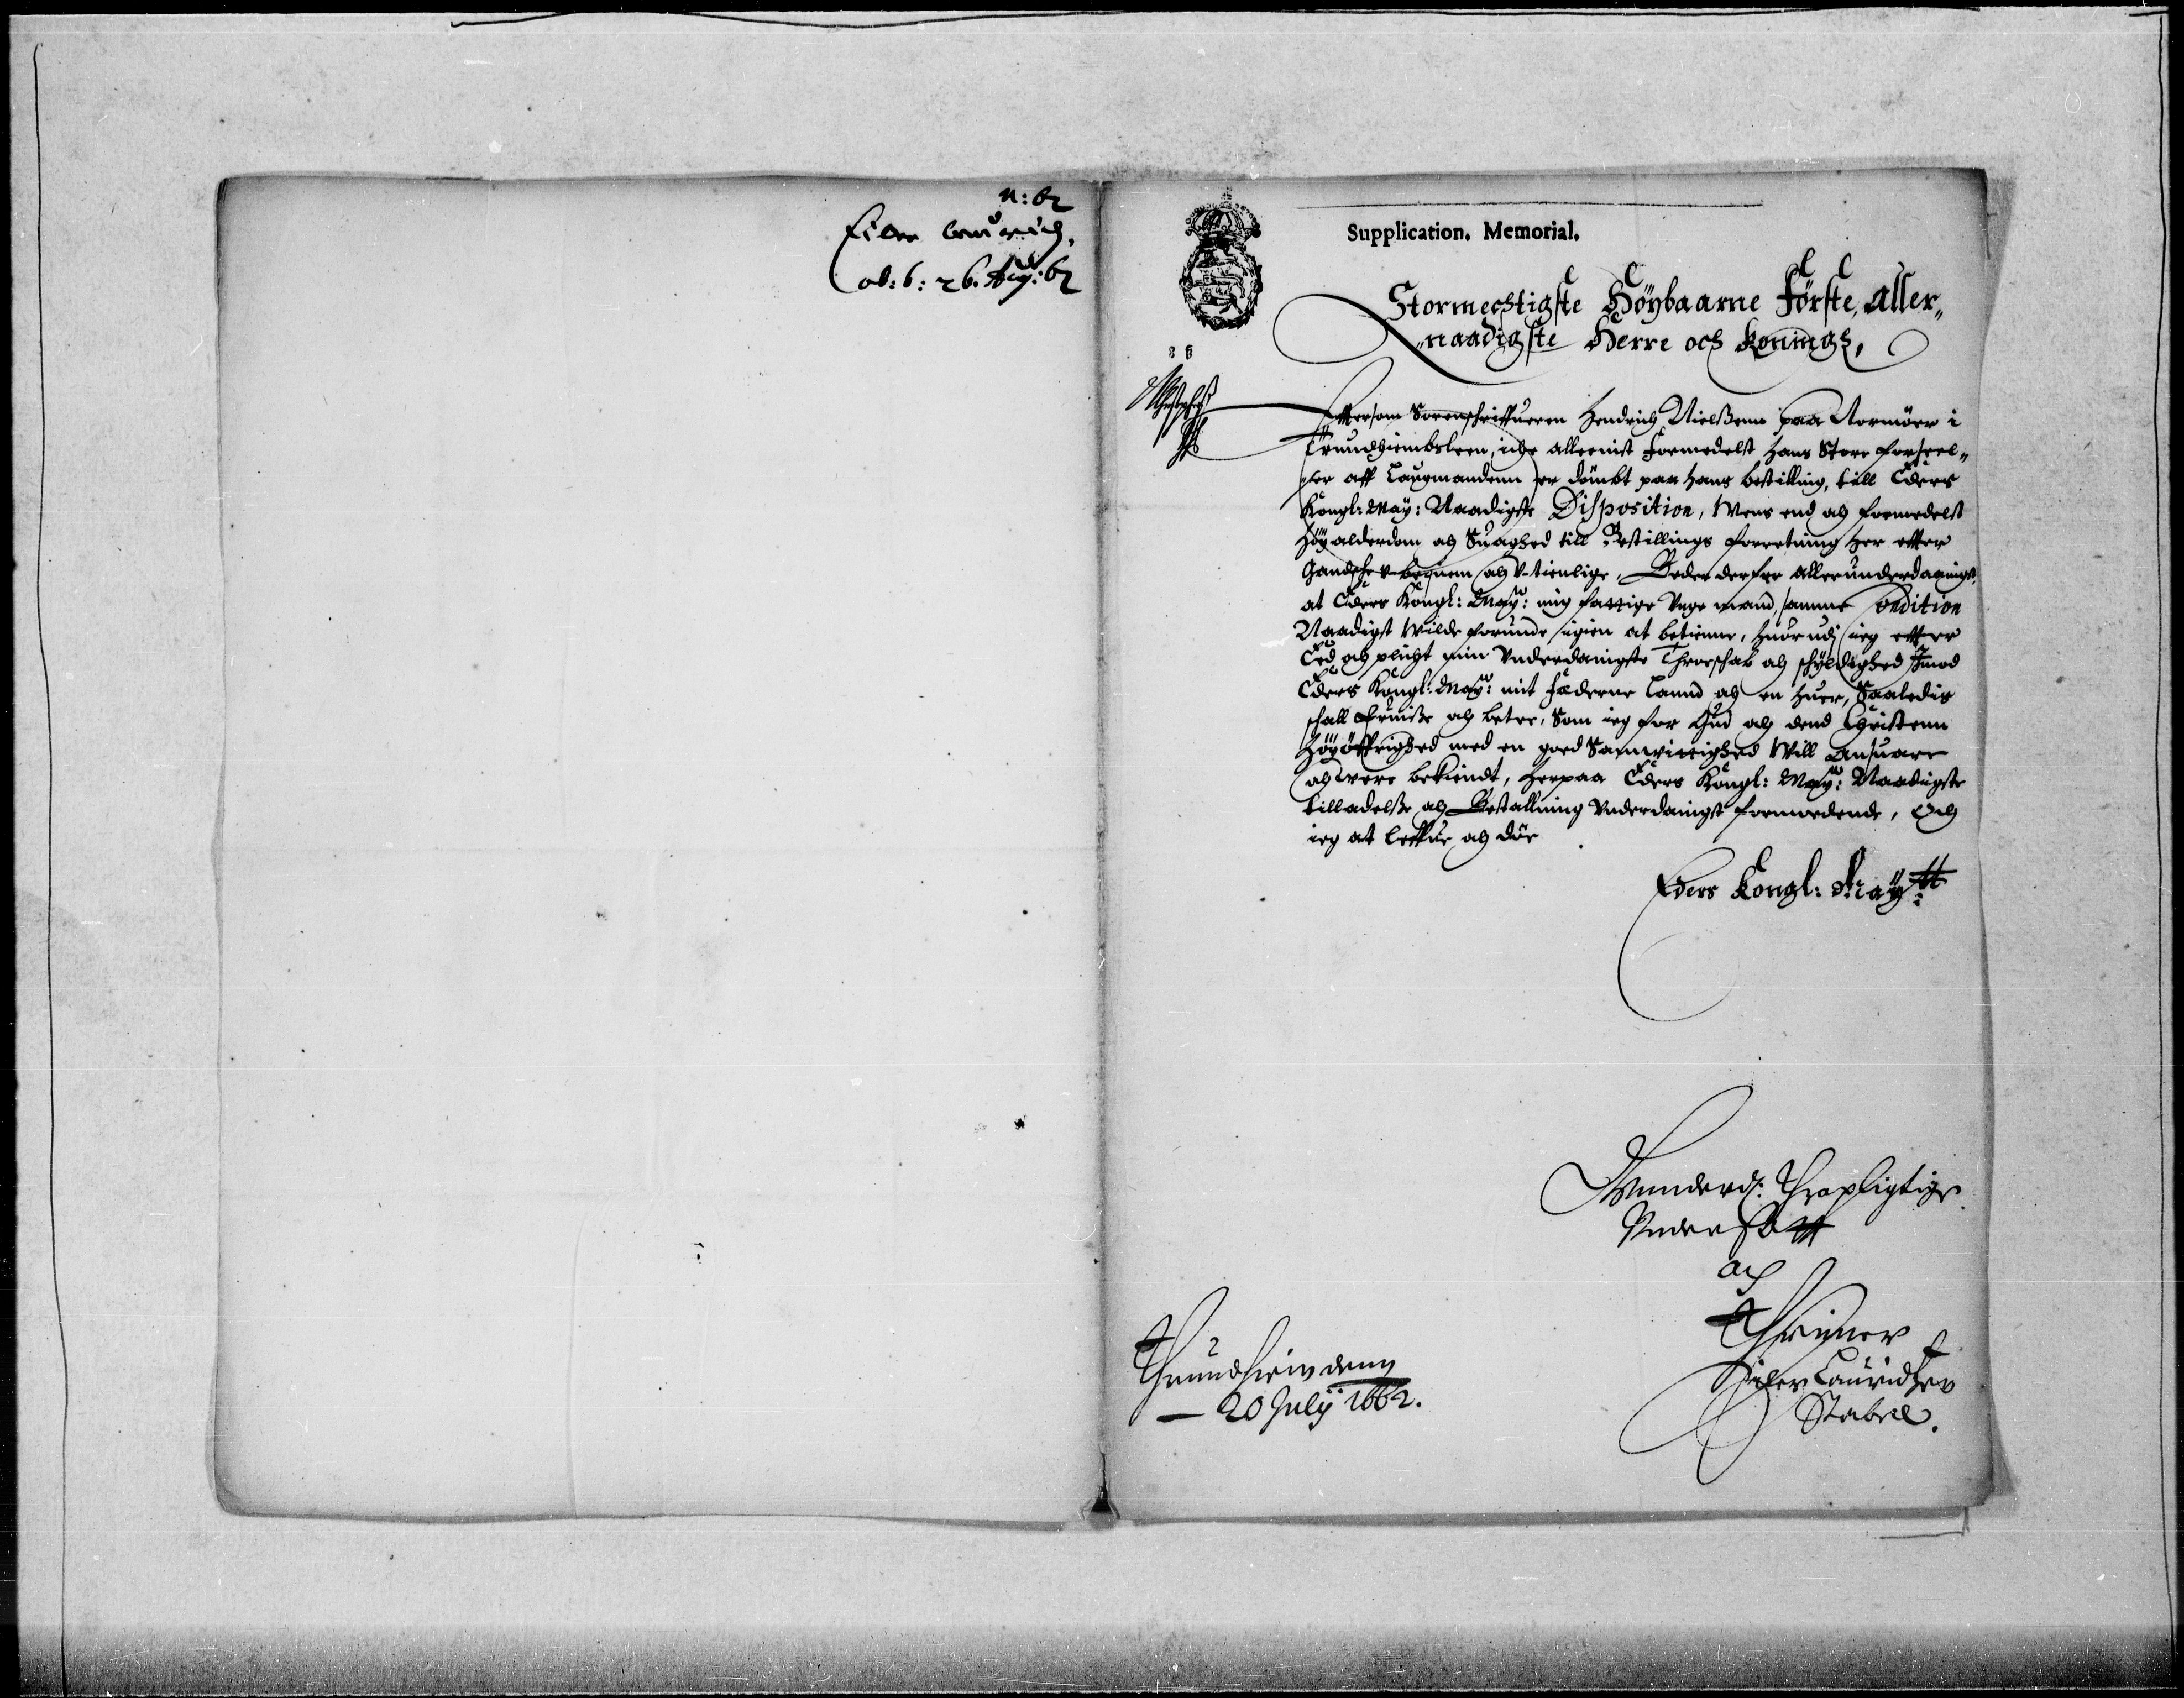 n: 62
Eiler
26. Aug: 62
Supplication. Memorial.
Stormechtigste Höybaarne Förste, Aller„
„naadigste Herre och Koningh,
8 ß
Effttersom Sorenschriffueren Hendrich Nielßenn paa Normöer i
Trundhiembs leen, iche alleenist formedelst hans Store forseel„
ser aff Laugmandenn er dömbt paa hans bestilling, till Eders
Kongl: May: Naadigste Disposition, Mens end och formedelst
höy alderdom och Suaghed till Bestillings forretning her effter
Gandsche v-beqvem och v-tienlige, Beder derfor allerunderdaanigst,
at Eders Kongl: Maytt: mig fattige Unge mand, samme Condition
Naadigst Wilde forunde igien at betienne, huor udj ieg effter
Eed och plicht min Underdanigste Throeschab och schyldighed Imod
Eders Kongl: Maytt: mit Fæderne Lannd och en huer, Saaledis
schall beuiße och betee, Som ieg for Gud och dend Christenn
höyöffrighed med en goed Samvittighed Will ansuare
och were bekiendt, herpaa Eders Kongl: Maytt: Naadigste
tilladelße och Bestallning Underdanigst formodende, Och
ieg at leffue och döe
Eders Kongl: Maytt:
Underd: Thropligtige
Undersatt
och
Thienner
Lauridtzen
Stabel.
Thrundhiem denn
20 Julij 1662.